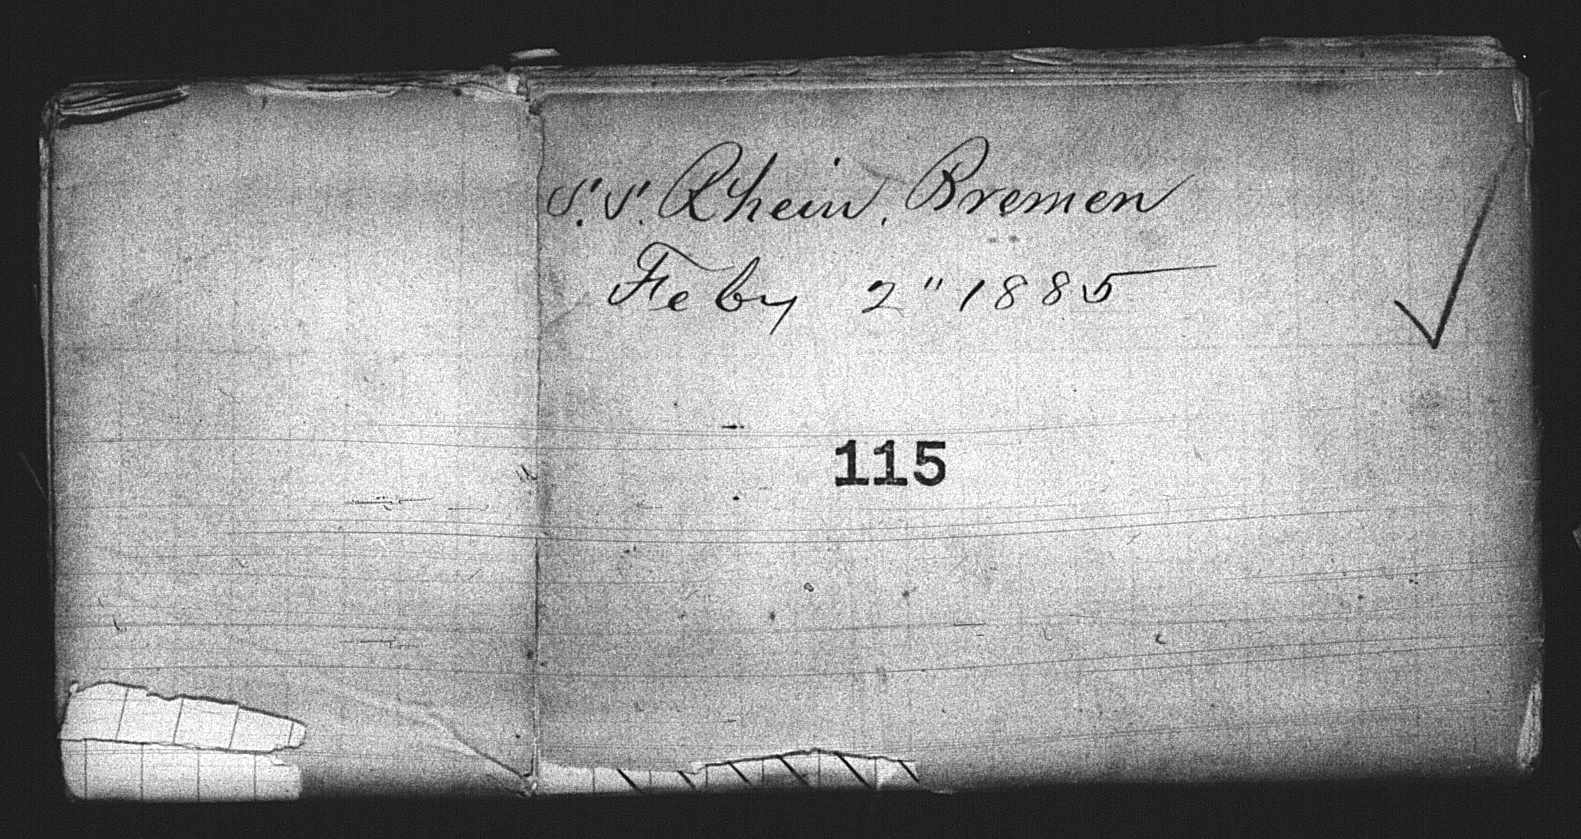 S.S. Rhein, Bremen
Feby 2" 1885
115